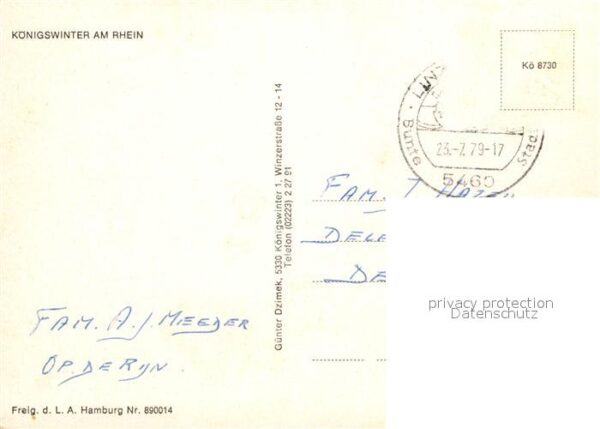 KÖNIGSWINTER AM RHEIN
Kö 8730
Bunte Stadt
23.-7.79-17
5460
Günter Dzimek, 5330 Königswinter 1, Winzerstraße 12 - 14
Telefon (02223) 2 27 91
FAM.
DELF
DE
privacy protection
Datenschutz
FAM. A.J. MEEDER
OP.DE RIJN.
Freig. d. L. A. Hamburg Nr. 890014